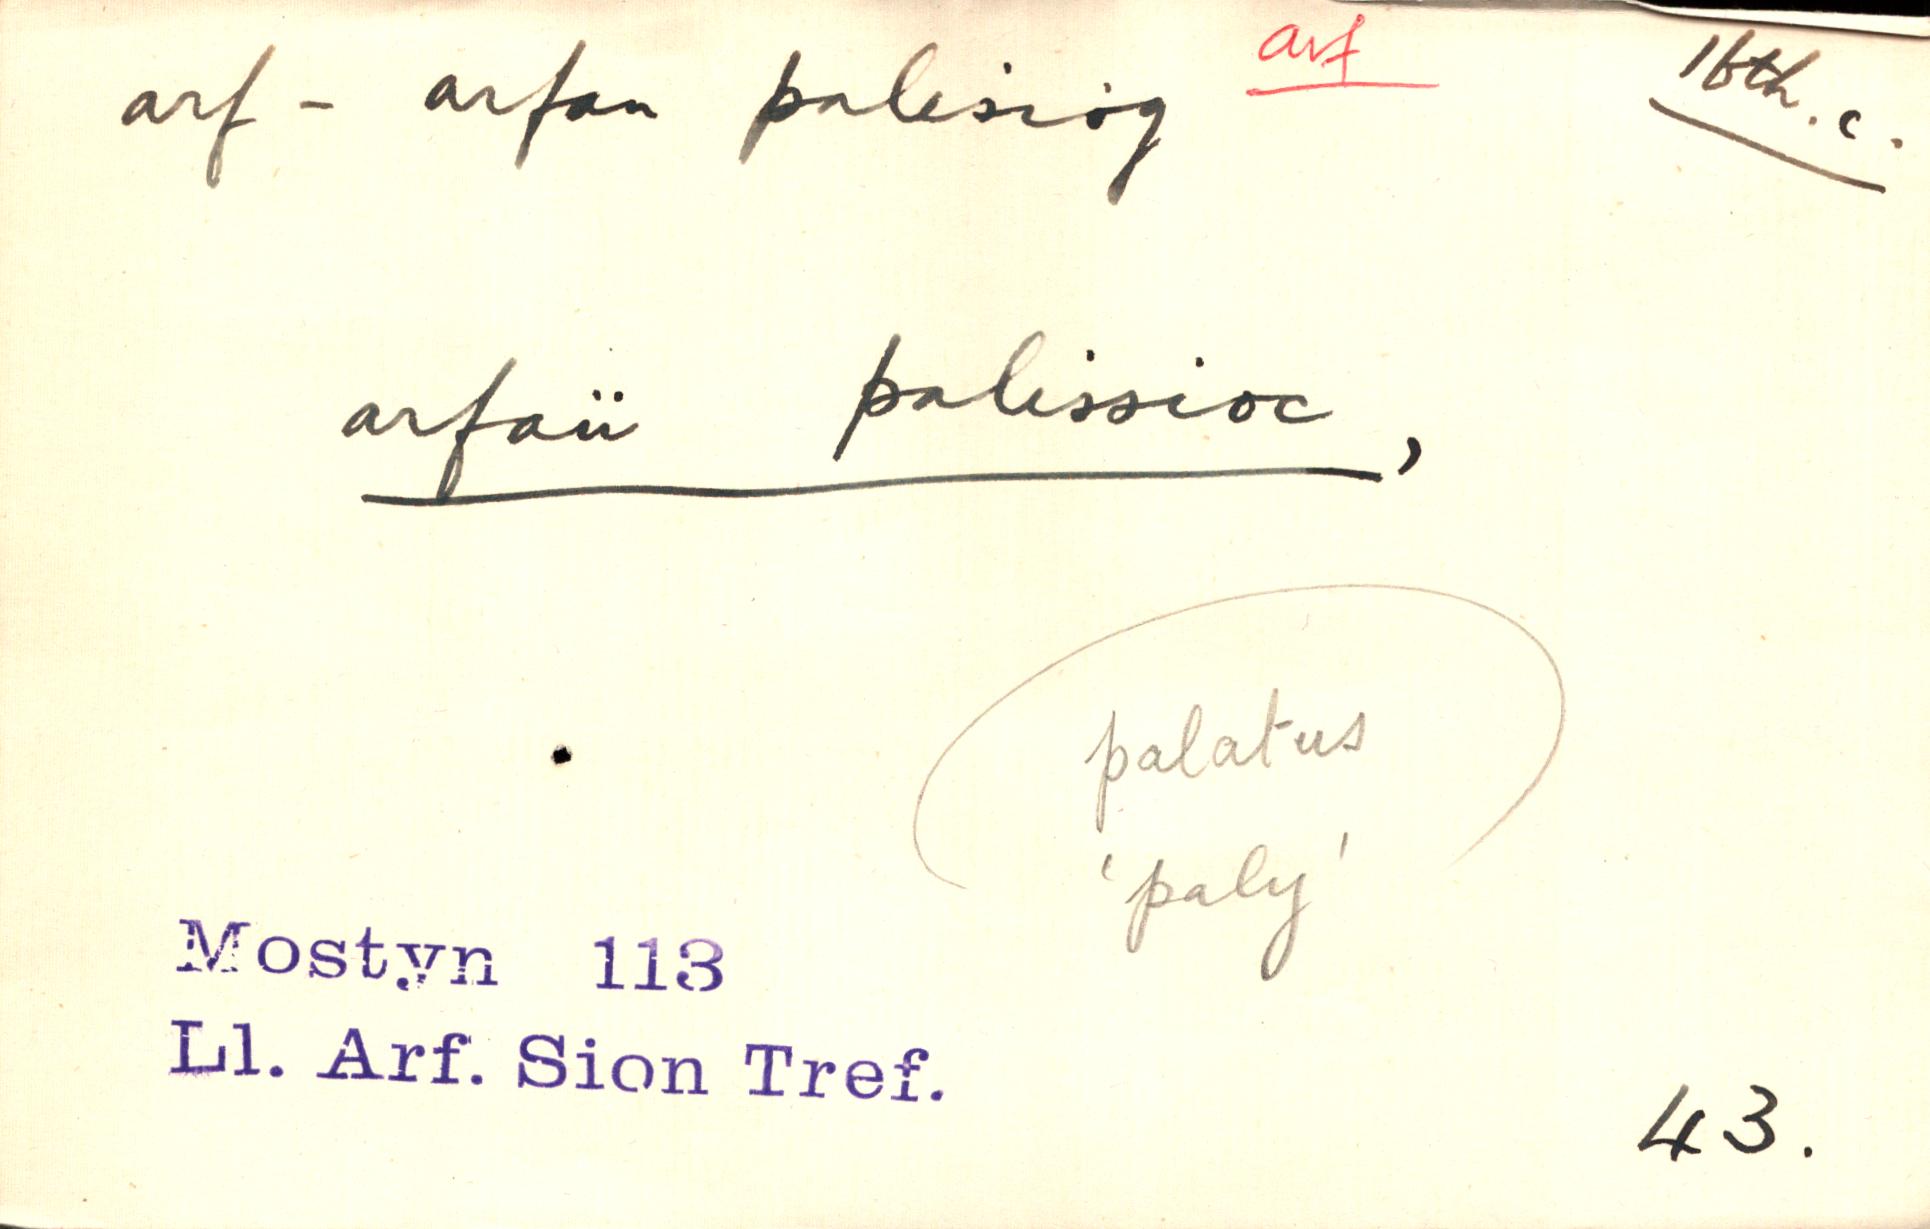 arf - arfau palisiog arf 16th. c.
arfaü palissioc,
palatus
'paly'
Mostyn 113
Ll. Arf. Sion Tref.
43.